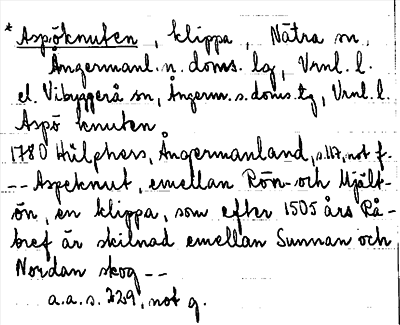 * Aspöknuten, klippa, Nätra sn,
Ångermanl. n. doms. lg, Vrnl. l.
el. Vibyggerå sn, Ångerm. s. doms. lg, Vrnl. l.
Aspö knuten
1780 Hülphers, Ångermanland, s. 117, not f.
-- Aspeknut, emellan Rön- och Mjält-
ön, en klippa, som efter 1505 års Rå-
bref är skilnad emellan Sunnan och
Nordan skog --
a.a. s. 229, not q.